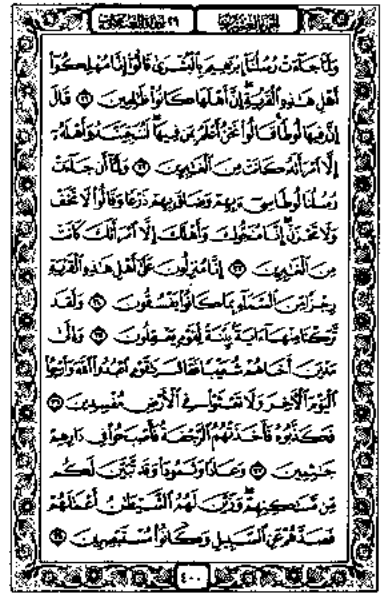 الجزء العشرون
٢٩ سورة العنكبوت
وَلَمَّا جَآءَتْ رُسُلُنَآ إِبْرَٰهِيمَ بِٱلْبُشْرَىٰ قَالُوٓا۟ إِنَّا مُهْلِكُوٓا۟
أَهْلِ هَٰذِهِ ٱلْقَرْيَةِ ۖ إِنَّ أَهْلَهَا كَانُوا۟ ظَٰلِمِينَ ٣١ قَالَ
إِنَّ فِيهَا لُوطًا ۚ قَالُوا۟ نَحْنُ أَعْلَمُ بِمَن فِيهَا ۖ لَنُنَجِّيَنَّهُۥ وَأَهْلَهُۥٓ
إِلَّا ٱمْرَأَتَهُۥ كَانَتْ مِنَ ٱلْغَٰبِرِينَ ٣٢ وَلَمَّآ أَن جَآءَتْ
رُسُلُنَا لُوطًا سِىٓءَ بِهِمْ وَضَاقَ بِهِمْ ذَرْعًا وَقَالُوا۟ لَا تَخَفْ
وَلَا تَحْزَنْ ۖ إِنَّا مُنَجُّوكَ وَأَهْلَكَ إِلَّا ٱمْرَأَتَكَ كَانَتْ
مِنَ ٱلْغَٰبِرِينَ ٣٣ إِنَّا مُنزِلُونَ عَلَىٰٓ أَهْلِ هَٰذِهِ ٱلْقَرْيَةِ
رِجْزًا مِّنَ ٱلسَّمَآءِ بِمَا كَانُوا۟ يَفْسُقُونَ ٣٤ وَلَقَد
تَّرَكْنَا مِنْهَآ ءَايَةًۢ بَيِّنَةً لِّقَوْمٍ يَعْقِلُونَ ٣٥ وَإِلَىٰ
مَدْيَنَ أَخَاهُمْ شُعَيْبًا فَقَالَ يَٰقَوْمِ ٱعْبُدُوا۟ ٱللَّهَ وَٱرْجُوا۟
ٱلْيَوْمَ ٱلْءَاخِرَ وَلَا تَعْثَوْا۟ فِى ٱلْأَرْضِ مُفْسِدِينَ ٣٦
فَكَذَّبُوهُ فَأَخَذَتْهُمُ ٱلرَّجْفَةُ فَأَصْبَحُوا۟ فِى دَارِهِمْ
جَٰثِمِينَ ٣٧ وَعَادًا وَثَمُودَا۟ وَقَد تَّبَيَّنَ لَكُم
مِّن مَّسَٰكِنِهِمْ ۖ وَزَيَّنَ لَهُمُ ٱلشَّيْطَٰنُ أَعْمَٰلَهُمْ
فَصَدَّهُمْ عَنِ ٱلسَّبِيلِ وَكَانُوا۟ مُسْتَبْصِرِينَ ٣٨
٤٠٠